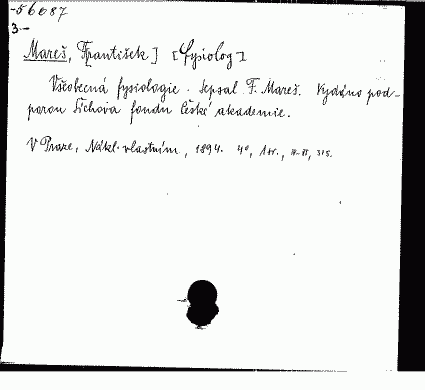 -56087
3.-
Mareš, František] [fysiolog]
Všeobecná fysiologie. Sepsal F. Mareš. Vydáno pod-
porou fondu České akademie.
V Praze, Nákl. vlastním, 1894. 4°, 1 str., 315.